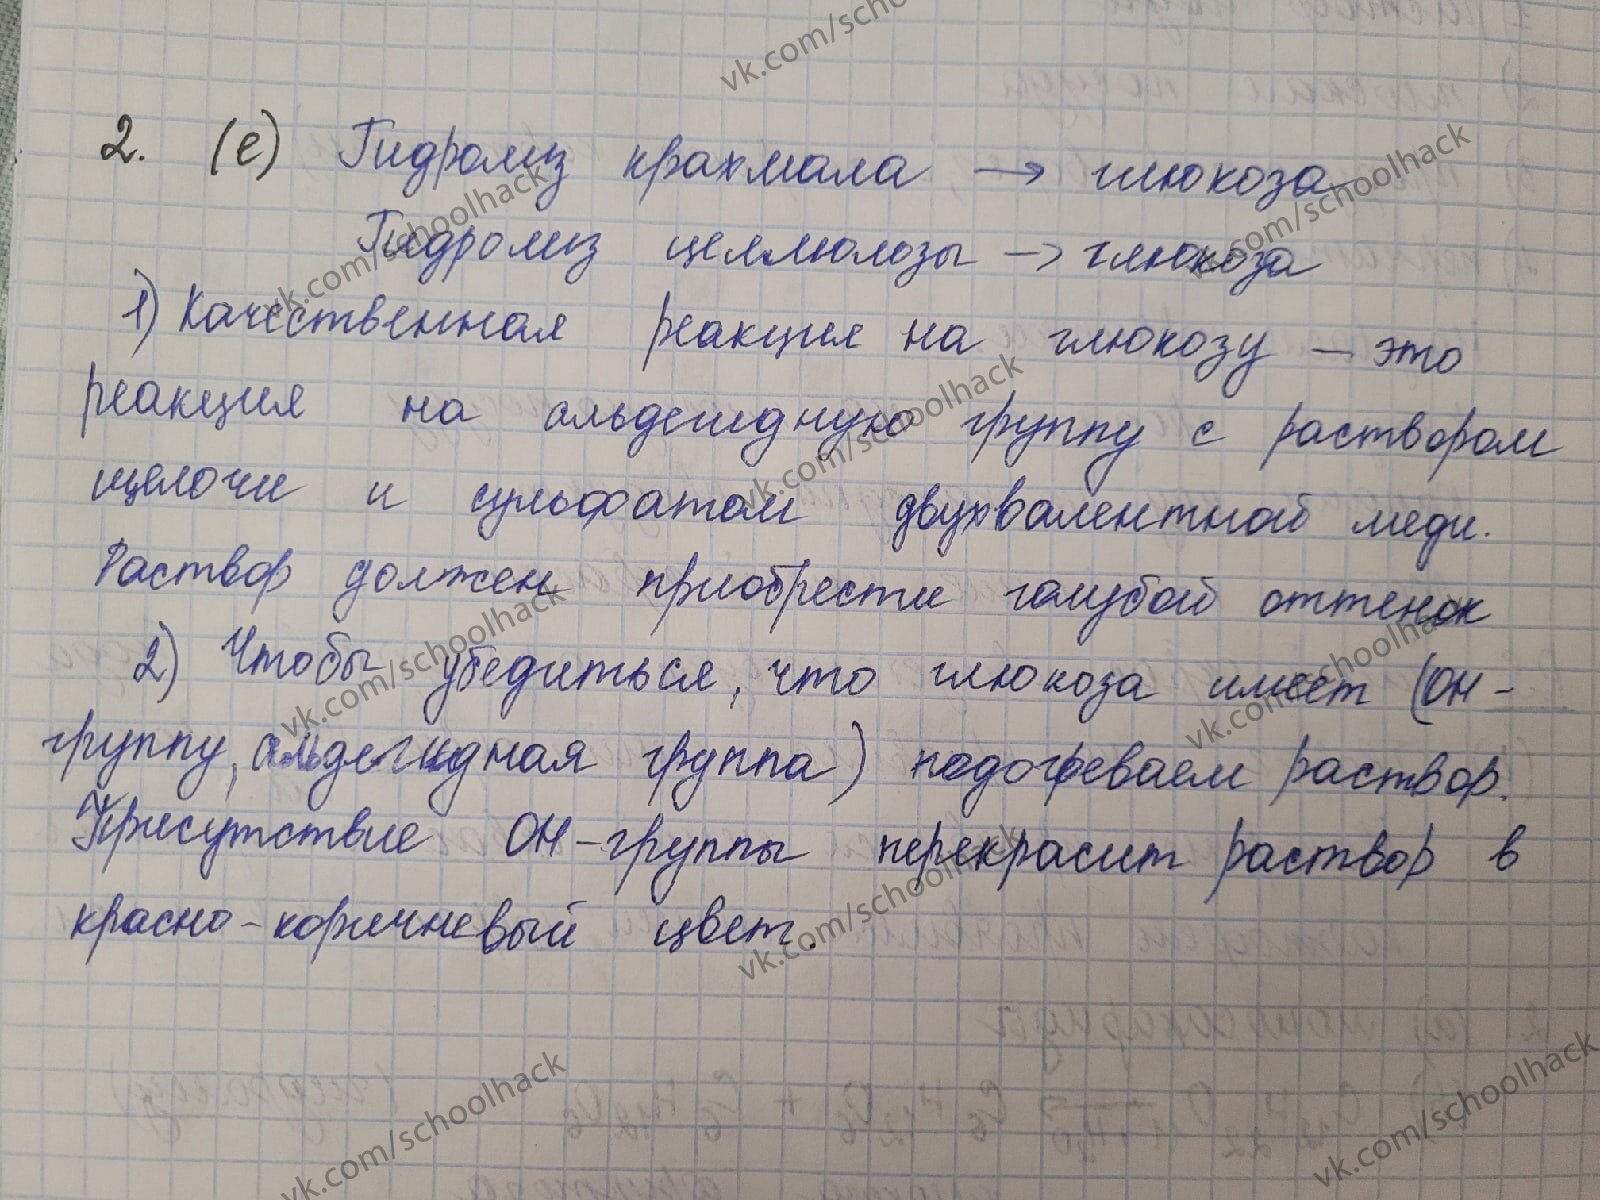 2. (е) Гидролиз крахмала → глюкоза
Гидролиз целлюлозы → глюкоза
1) Качественная реакция на глюкозу – это
реакция на альдегидную группу с раствором
щелочи и сульфатом двухвалентной меди.
Раствор должен приобрести голубой оттенок
2) Чтобы убедиться, что глюкоза имеет (ОН-
группу, альдегидная группа) подогреваем раствор.
Присутствие ОН-группы перекрасит раствор в
красно-коричневый цвет.
vk.com/schoolhack
vk.com/schoolhack
vk.com/schoolhack
vk.com/schoolhack
vk.com/schoolhack
vk.com/schoolhack
vk.com/schoolhack
vk.com/schoolhack
vk.com/schoolhack